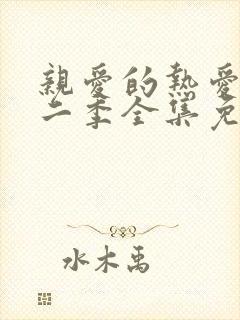 親愛的熱愛
二季全集免
水木禹